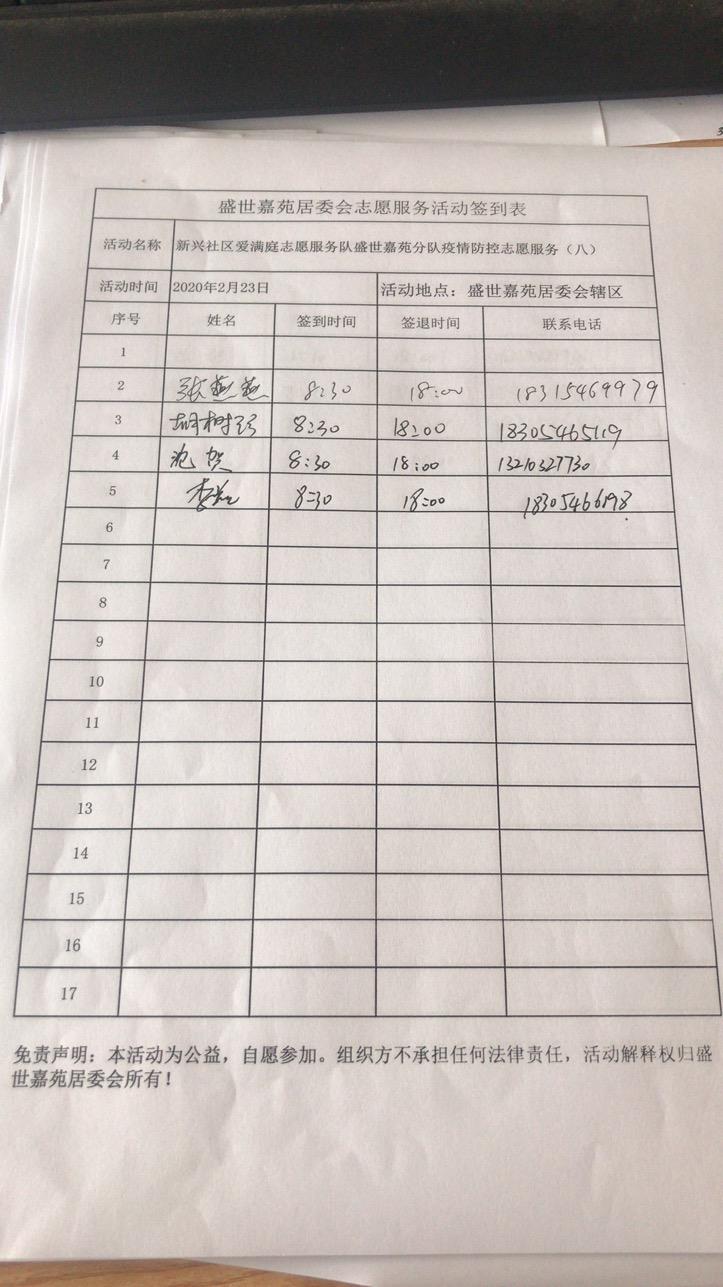 盛世嘉苑居委会志愿服务活动签到表
活动名称 新兴社区爱满庭志愿服务队盛世嘉苑分队疫情防控志愿服务（八）
活动时间 2020年2月23日 活动地点：盛世嘉苑居委会辖区
序号 姓名 签到时间 签退时间 联系电话
1
2 8:30 18:00 18315469979
3 胡树珍 8:30 18:00 18305465119
4 8:30 18:00 13210327730
5 8:30 18:00 18305466198
6
7
8
9
10
11
12
13
14
15
16
17
免责声明：本活动为公益，自愿参加。组织方不承担任何法律责任，活动解释权归盛
世嘉苑居委会所有！